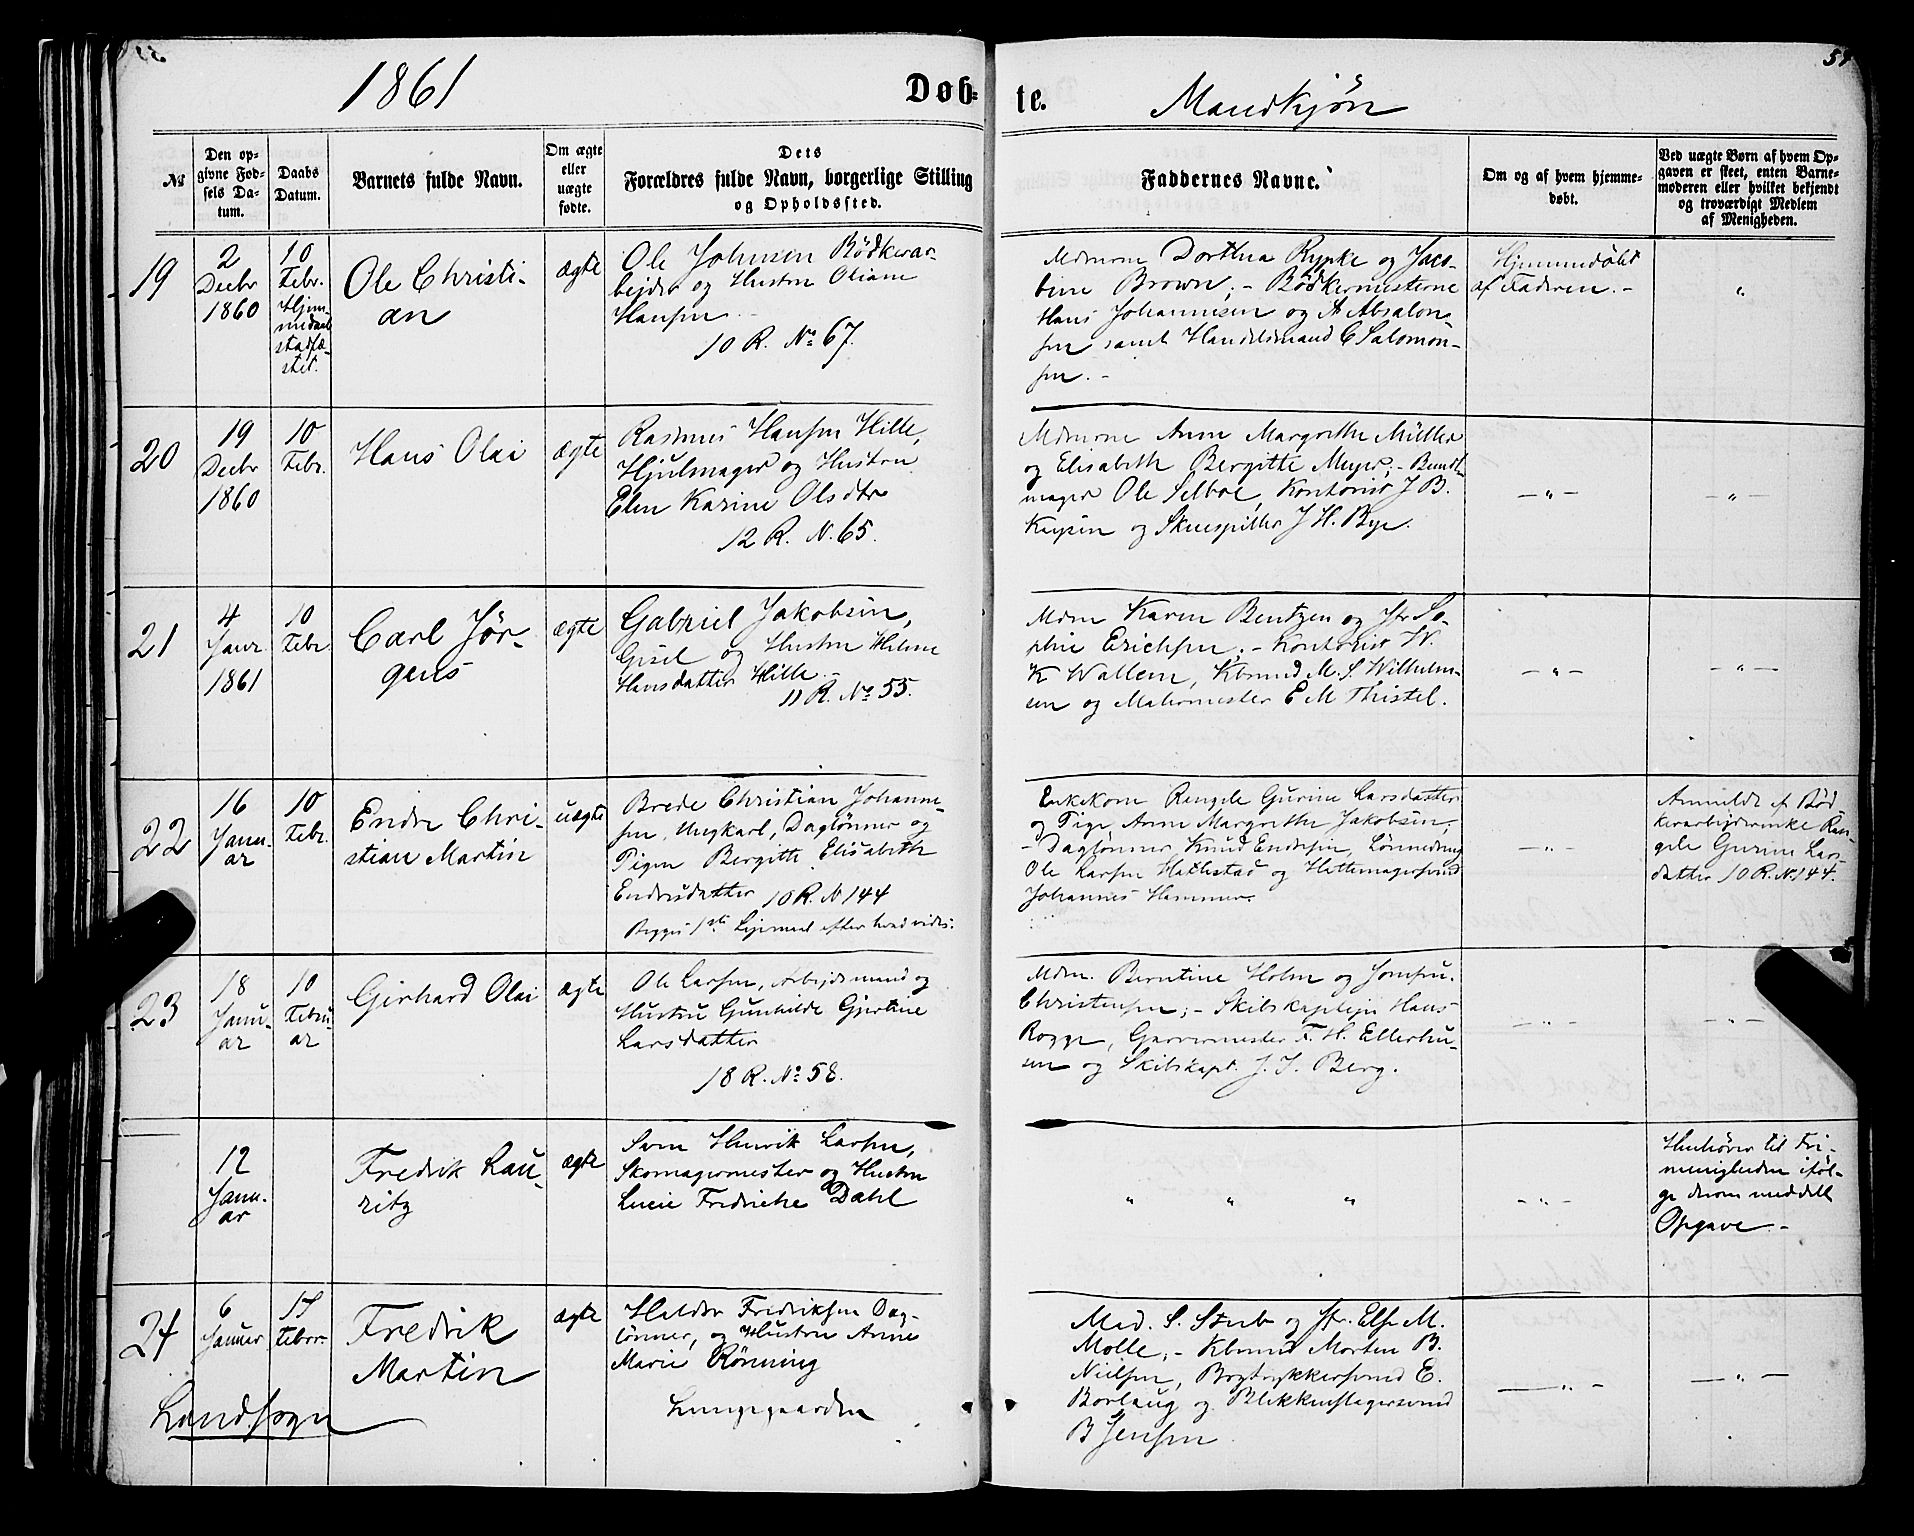 57
1861
Døb-
te.
Mandkjøn
№
Den op-
givne Fød-
sels Da-
tum.
Daabs
Datum.
Barnets fulde Navn.
Om ægte
eller
uægte
fødte.
Dets
Forældres fulde Navn, borgerlige Stilling
og Opholdssted.
Faddernes Navne.
Om og af hvem hjemme-
døbt.
Ved uægte Børn af hvem Op-
gaven er skeet, enten Barne-
moderen eller hvilket bekjendt
og troværdigt Medlem
af Menigheden.
19
2
Decbr
1860
10
Febr.
Hjem-
medaab
stadfæ-
stet.
Ole Christi-
an
ægte
Ole Johnsen Bødkerar-
bejder og Hustru Oliane
Hansen
10 R. No 67.
Mdmrne Dorthea Rypke og Jaco-
bine Brown; - Bødkermesterne
Hans Johannesen og A Absalon-
sen samt Handelsmand C Salomon-
sen. -
Hjemmedøbt
af Faderen. -
"
20
19
Decbr
1860
10
Febr.
Hans Olai
ægte
Rasmus Hansen Hille,
Hjulmager og Hustru
Elen Karine Olsdtr
12 R. N. 65.
Mdmrne Anne Margrethe Müller
og Elisabeth Bergitte Meyer; - Bundt-
mager Ole Selboe, Kontorist J B.
og Skuespiller J H. Bye.
- " -
- " -
21
4
Janr.
1861
10
Febr
Carl Jør-
gens
ægte
Gabriel Jakobsen,
Gisel og Hustru Helene
Hansdatter Hille -
11 R. No 55.
Mdm Karen Bentzen og Jfr So-
phie Erichsen; - Kontorist W.
K Wallem, Kbmnd M. S. Wilhelm-
sen og Malermester E M Thistel.
- " -
- " -
22
16
Janu-
ar
10
Febr.
Endre Chri-
stian Martin
uægte
Brede Christian Johanne-
sen, Ungkarl, Daglønner og
Pigen Bergitte Elisabeth
Endresdatter 10 R. N 144
Begges 1ste Lejermaal efter hvad vides.
Enkekone Rengele Gurine Larsdatter
og Pige Anne Margrethe Jakobsen;
- Daglønner Knud Endresen, Lønnedreng
Ole Larsen Hatlestad og Hattemagersvend
Johannes Hammer.
- " -
Anmeldt af Bød-
kerarbejderenke Ren-
gele Gurine Lars-
datter 10 R. N. 144.
23
18
Janu-
ar
10
Febru-
ar
Gerhard Olai
ægte
Ole Larsen, Arbejdsmand og
Hustru Gunhilde Gjertine
Larsdatter
18 R. No 58.
Mdm. Berntine Holm og Jomfru
Christensen; - Skibskaptejn Hans
Rogge, Garvermester F. H. Ellerhu-
sen og Skibskapt. J. J. Berg.
- " -
- " -
12
Janu-
ar
Fredrik Lau-
ritz
ægte
Sven Henrik Larsen,
Skomagermester og Hustru
Lucie Fredrikke Dahl
" " "
- " -
Henhører til Fri-
menigheden iføl-
ge derom meddelt
Opgave. -
24
6
Januar
17
Febr.
Fredrik
Martin
ægte
Haldor Fredriksen Dag-
lønner, og Hustru Anne
Marie Rønning
Lungegaarden
Landsogn
Mad. S. Stub og Jfr. Else M.
Molle; - Kbmnd Morten B.
Nielsen, Bogtrykkersvend E.
Borlaug og Blikkenslagersvend
B Jensen
- " -
- " -